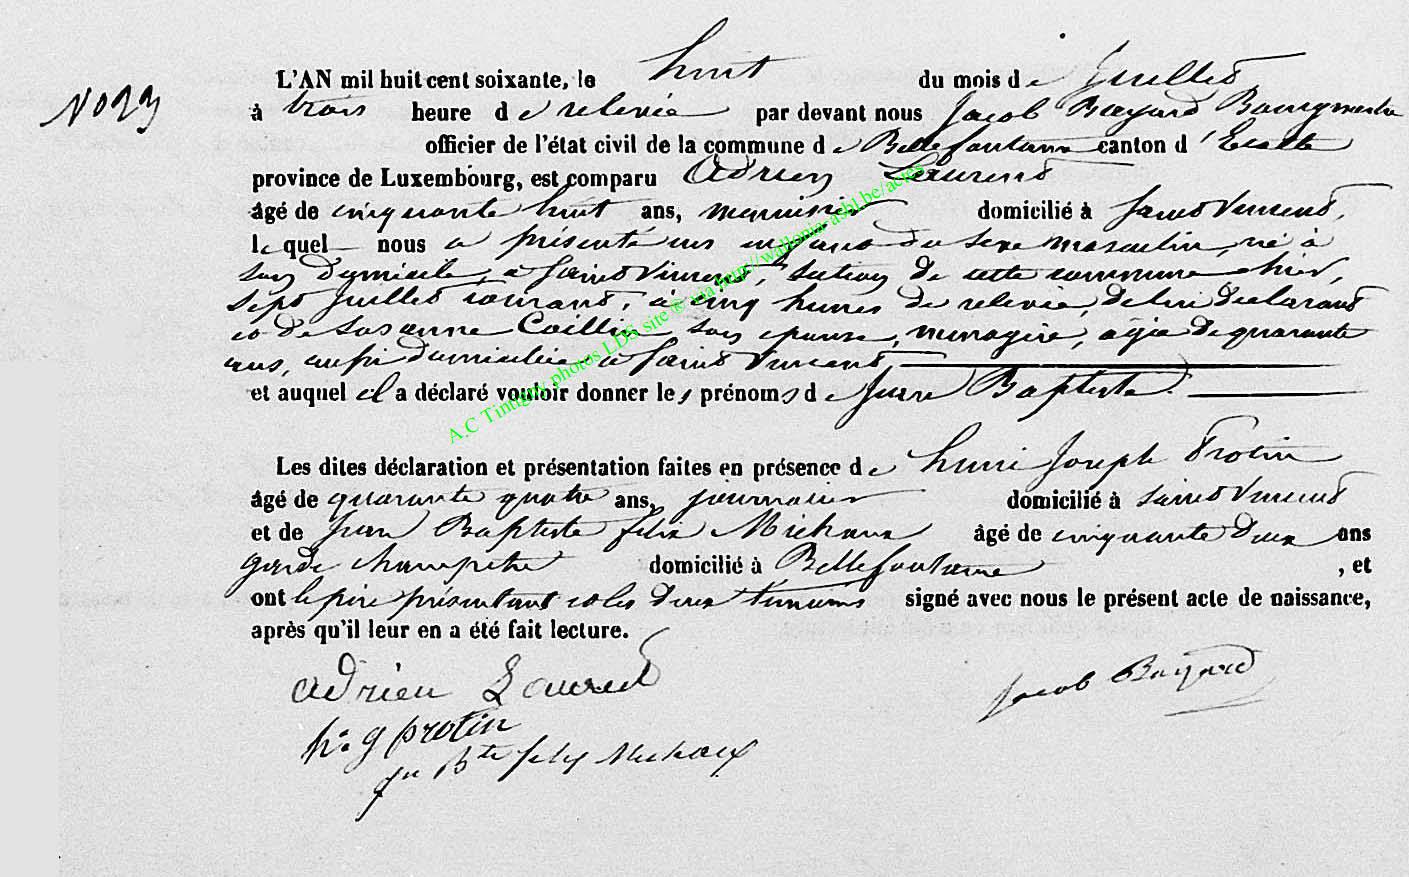 N° 23
L'AN mil huit cent soixante, le huit du mois de Juillet
à trois heure de relevée par devant nous Jacob Bayard Bourgmestre
officier de l'état civil de la commune de Bellefontaine canton d'Etalle
province de Luxembourg, est comparu Adrien Laurent
âgé de cinquante huit ans, menuisier domicilié à Saint Vincent,
lequel nous a présenté un enfant du sexe masculin, né à
son domicile, à Saint Vincent, section de cette commune hier,
sept Juillet courant, à cinq heures de relevée, de lui déclarant
et de Susanne Collin son épouse, ménagère, agée de quarante
ans, aussi domiciliée à Saint Vincent
et auquel il a déclaré vouloir donner les prénoms de Jean Baptiste.
Les dites déclaration et présentation faites en présence de Henri Joseph Protin
âgé de quarante quatre ans, journalier domicilié à Saint Vincent
et de Jean Baptiste felix Michaux âgé de cinquante deux ans
garde champetre domicilié à Bellefontaine, et
ont le père présentant et les deux témoins signé avec nous le présent acte de naissance,
après qu'il leur en a été fait lecture.
Adrien Laurent
Jacob Bayard
h. j protin
jn Bte felix Michaux
A.C Tintigny photos LDS, site ® via http://wallonia-asbl.be/actes